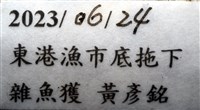 2023/06/24
東港漁市底拖下
雜魚獲 黃彥銘